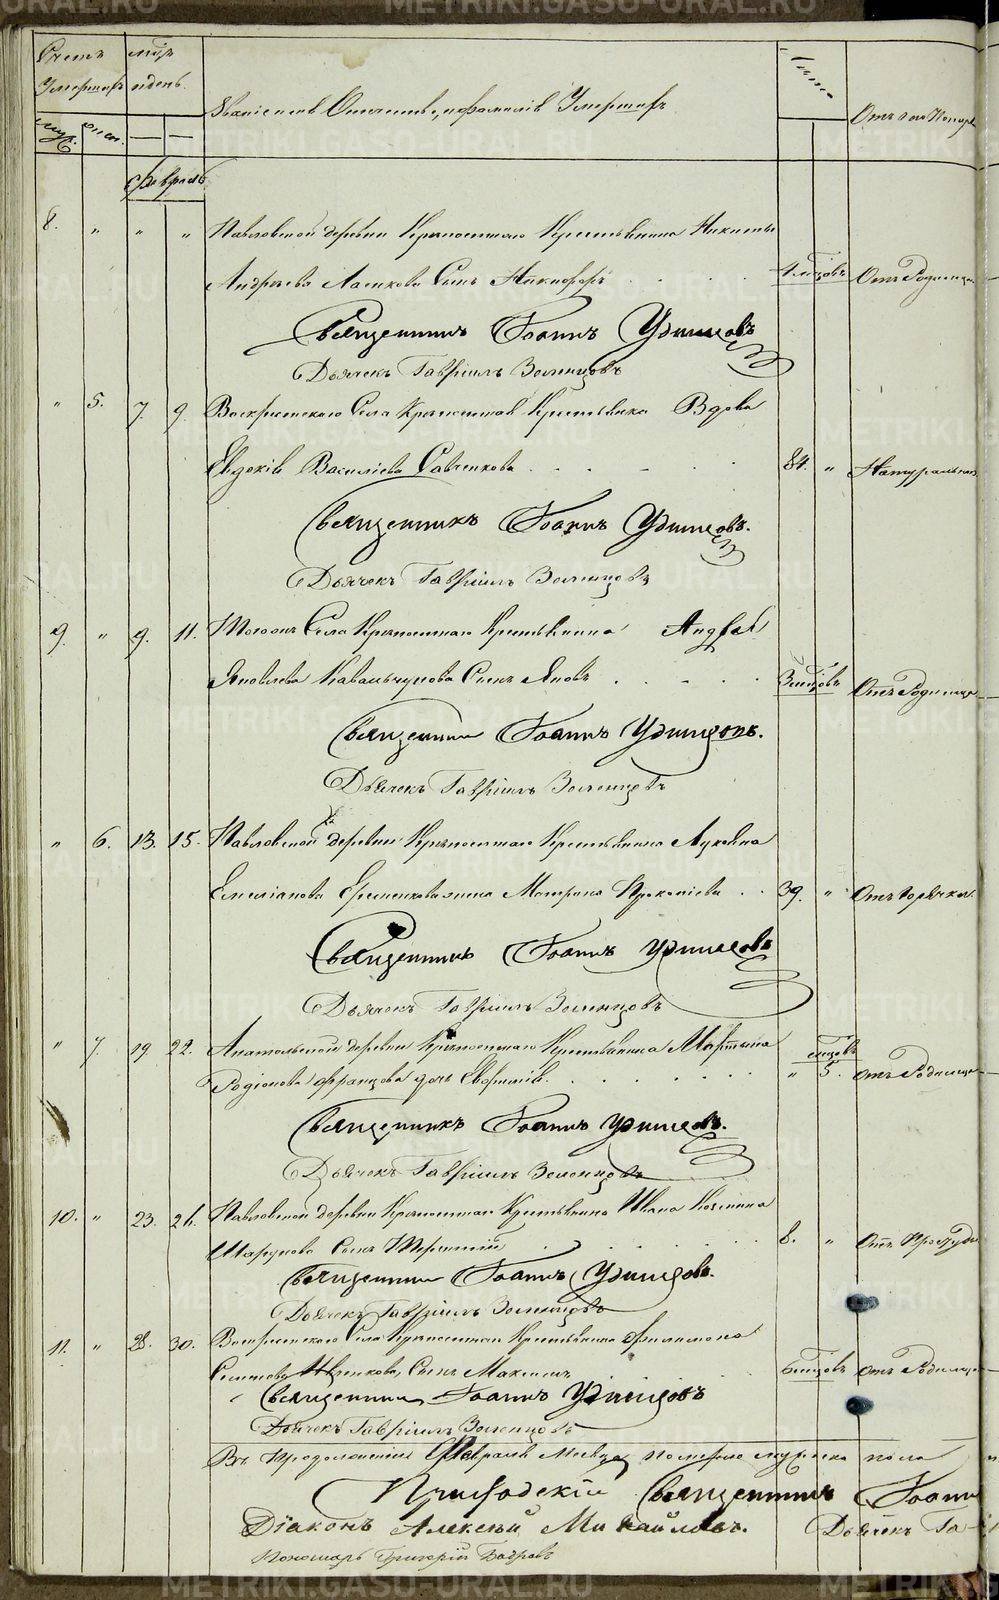 Счетъ
Умершихъ
мѣсяцъ
и день.
Званіе имя Отчество, и фамилія Умершихъ
Лѣта
Отъ чего Померъ
муж.
жен.
Февраль
8. " " " Павловской деревни Крѣпостнаго Крестьянина Никиты
Андреева Сынъ Никифоръ 4 мѣсцовъ Отъ Родимца
Священникъ Іоаннъ Удинцовъ
Дьячекъ Гавріилъ Зеленцовъ
" 5. 7. 9. Воскресенскаго Села Крѣпостная Крестьянка Вдова
Евдокія Василіева Савченкова 84. " Натуральною
Священникъ Іоаннъ Удинцовъ.
Дьячекъ Гавріилъ Зеленцовъ
9. " 9. 11. Тогожъ Села Крѣпостнаго Крестьянина Андрея
Яковлева Сынъ Яковъ 3 мѣсцовъ Отъ Родимца
Священникъ Іоаннъ Удинцовъ.
Дьячекъ Гавріилъ Зеленцовъ
" 6. 13. 15. Павловской деревни Крѣпостнаго Крестьянина
Емеліанова Еременкова жена Матрона Прокопіева 39. " Отъ Горячки.
Священникъ Іоаннъ Удинцовъ
Дьячекъ Гавріилъ Зеленцовъ
" 7. 19 22. Анатольской деревни Крѣпостнаго Крестьянина Мартына
мѣсцовъ
Родіонова Францова дочь Евфимія. " 5. Отъ Родимца
Священникъ Іоаннъ Удинцовъ.
Дьячекъ Гавріилъ Зеленцовъ
10. " 23. Павловской деревни Крѣпостнаго Крестьянина Ивана
Сынъ Терентій 8. " Отъ Простуды
Священникъ Іоаннъ Удинцовъ.
Дьячекъ Гавріилъ Зеленцовъ
11. " 28. 30. Воскресенскаго Села Крѣпостнаго Крестьянина Филимона
Сынъ Максимъ 6 мѣсцовъ Отъ Родимца
Священникъ Іоаннъ Удинцовъ
Дьячекъ Гавріилъ Зеленцовъ
Въ Продолженіи Февраля Месяца померло мужеска пола
Приходскій Священникъ Іоаннъ
Діаконъ Алексѣй Михайловъ. Дьячекъ Га-
Пономарь Григорій Бобровъ
METRIKI.GASO-URAL.RU